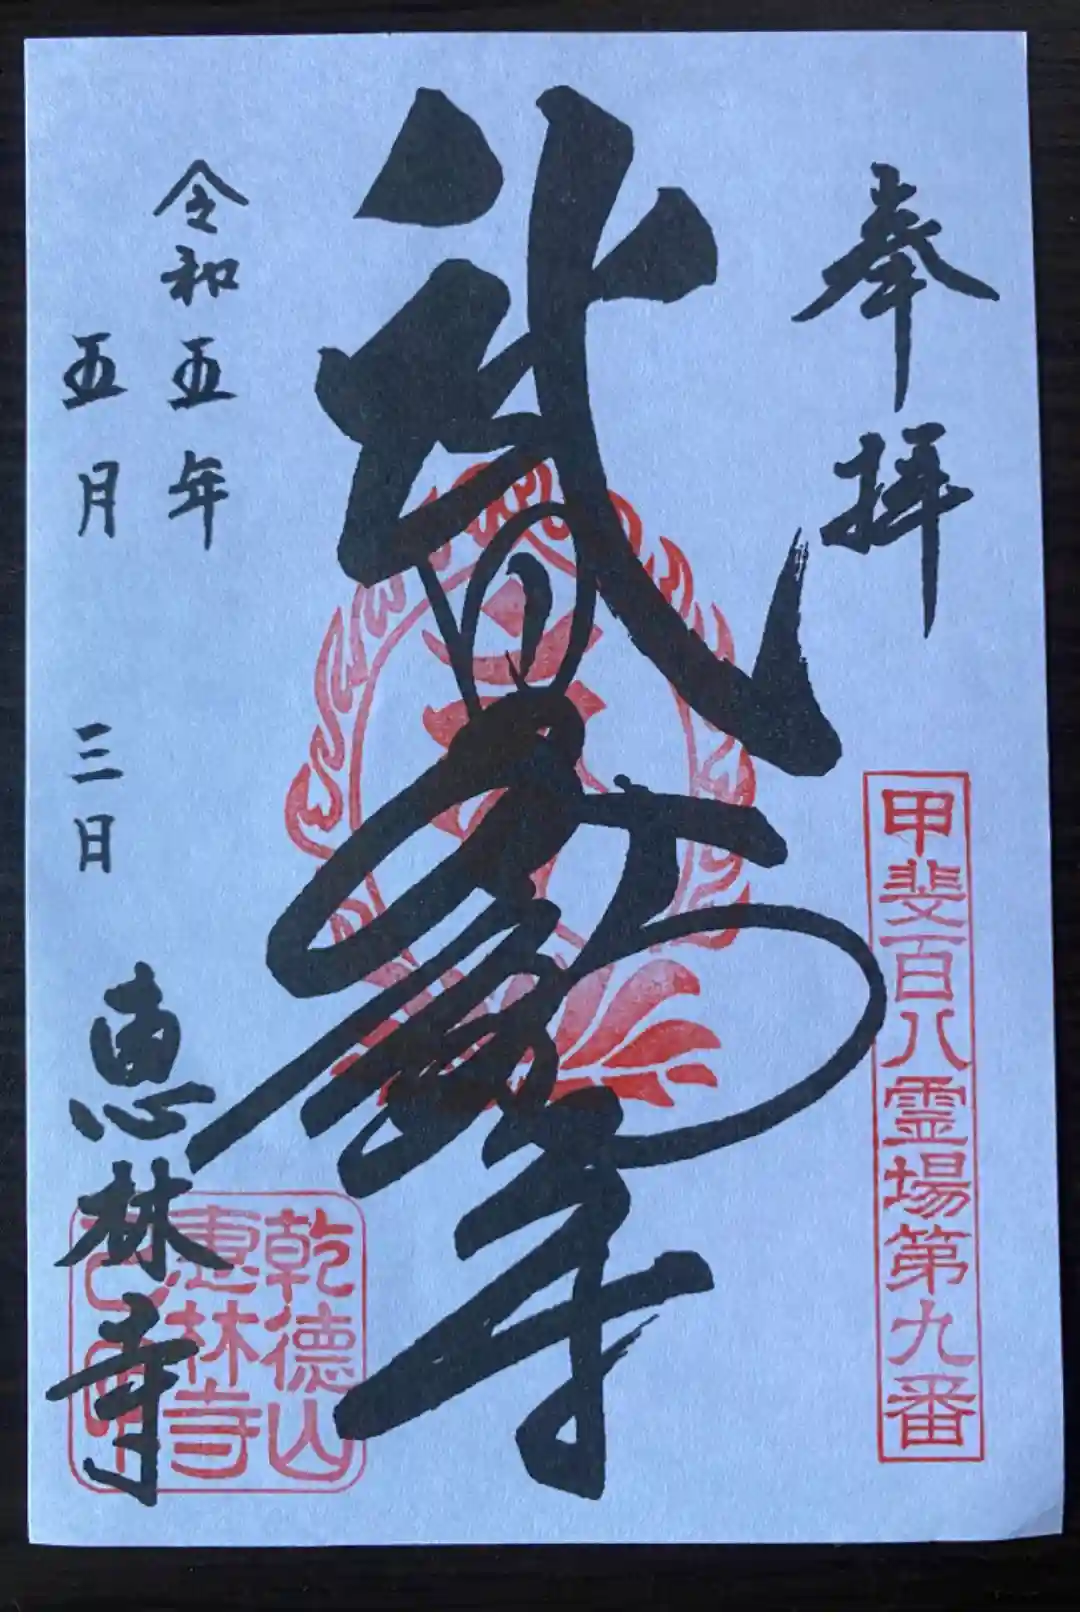 奉拝
甲斐百八霊場第九番
武田不動尊
令和五年
五月 三日
恵林寺
乾德山
惠林寺